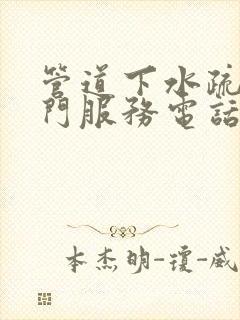 管道下水疏
門服務電話
本杰明-瓊-威